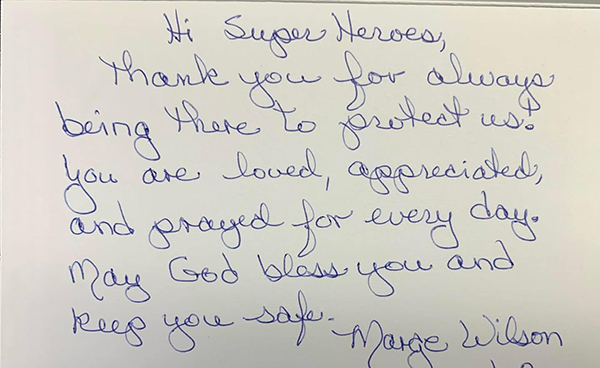 Hi Super Heroes,
Thank you for always
being there to protect us!
You are loved, appreciated,
and prayed for every day.
May God bless you and
keep you safe.
Marge Wilson